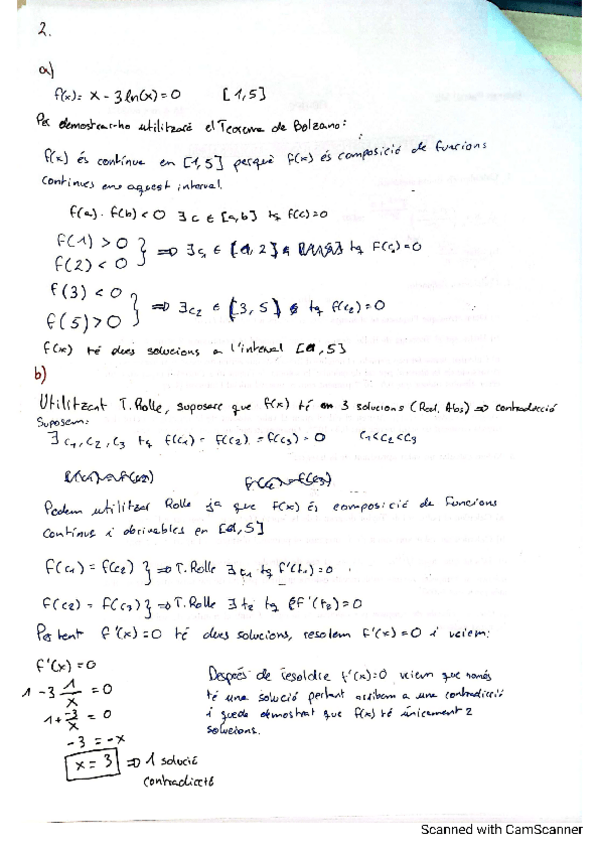 2.
a)
f(x) = x - 3 ln(x) = 0 [1,5]
Per demostrar-ho utilitzaré el Teorema de Bolzano:
f(x) és contínua en [1,5] perquè f(x) és composició de funcions
contínues en aquest interval.
f(a) · f(b) < 0 ∃ c ∈ [a,b] tq f(c) = 0
f(1) > 0 } ⇒ ∃ c₁ ∈ [1, 2] tq f(c₁) = 0
f(2) < 0
f(3) < 0 } ⇒ ∃ c₂ ∈ [3, 5] tq f(c₂) = 0
f(5) > 0
f(x) té dues solucions a l'interval [1,5]
b)
Utilitzant T. Rolle, suposaré que f(x) té 3 solucions (Red. Abs) ⇒ contradicció
Suposem:
∃ c₁, c₂, c₃ tq f(c₁) = f(c₂) = f(c₃) = 0 c₁<c₂<c₃
Podem utilitzar Rolle ja que f(x) és composició de funcions
contínues i derivables en [1,5]
f(c₁) = f(c₂) } ⇒ T. Rolle ∃ t₁ tq f'(t₁) = 0
f(c₂) = f(c₃) } ⇒ T. Rolle ∃ t₂ tq f'(t₂) = 0
Per tant f'(x) = 0 té dues solucions, resolem f'(x) = 0 i veiem:
f'(x) = 0
1 - 3 1/x = 0
1 + -3/x = 0
-3 = -x
x = 3 ⇒ 1 solució
contradicció
Després de resoldre f'(x)=0 veiem que només
té una solució pertant arribem a una contradicció
i queda demostrat que f(x) té únicament 2
solucions.
Scanned with CamScanner